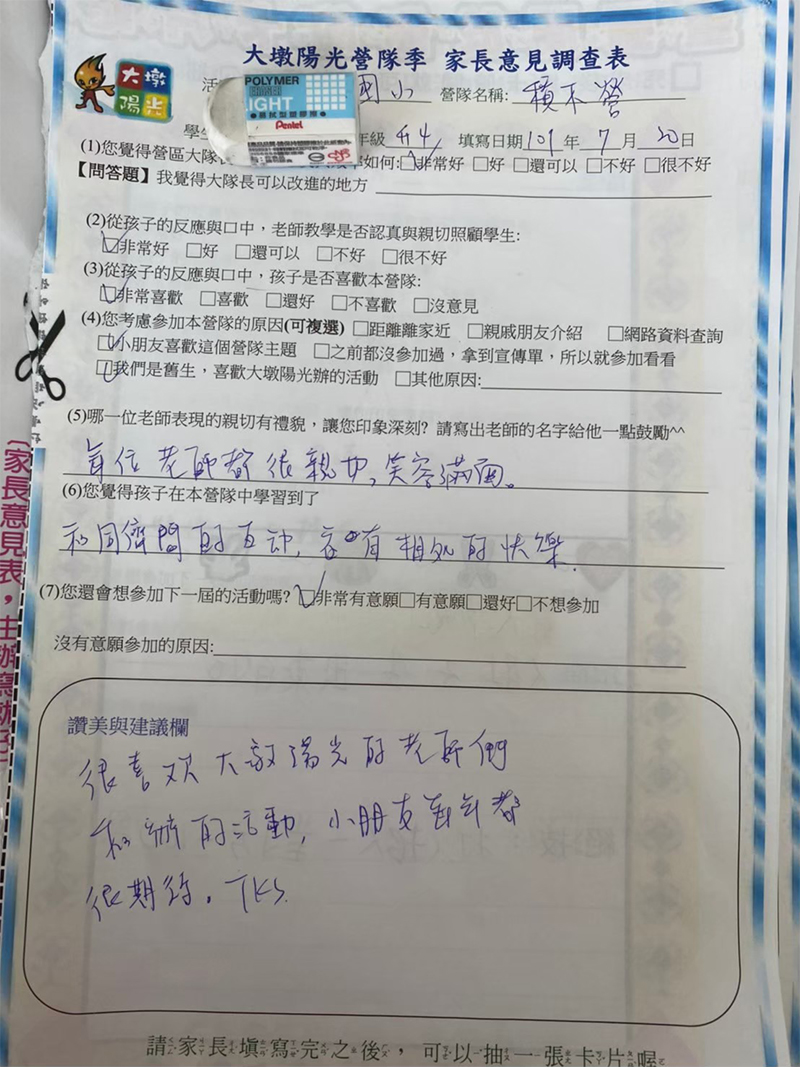 大墩陽光營隊季 家長意見調查表
大墩
陽光
活
POLYMER
ERASER
IGHT
Pentel
國小 營隊名稱: 積木營
學生
年級 升4 填寫日期 109 年 7 月 20 日
(1)您覺得營區大隊長 率如何:☑非常好 □好 □還可以 □不好 □很不好
【問答題】我覺得大隊長可以改進的地方
(2)從孩子的反應與口中，老師教學是否認真與親切照顧學生:
☑非常好 □好 □還可以 □不好 □很不好
(3)從孩子的反應與口中，孩子是否喜歡本營隊:
☑非常喜歡 □喜歡 □還好 □不喜歡 □沒意見
(4)您考慮參加本營隊的原因(可複選) □距離離家近 □親戚朋友介紹 □網路資料查詢
☑小朋友喜歡這個營隊主題 □之前都沒參加過，拿到宣傳單，所以就參加看看
☑我們是舊生，喜歡大墩陽光辦的活動 □其他原因:
(5)哪一位老師表現的親切有禮貌，讓您印象深刻? 請寫出老師的名字給他一點鼓勵^^
每位老師都很親切,笑容滿面。
(6)您覺得孩子在本營隊中學習到了
和同儕間的互动, 享有相処的快樂.
(7)您還會想參加下一屆的活動嗎? ☑非常有意願□有意願□還好□不想參加
沒有意願參加的原因:
讚美與建議欄
很喜欢大墩陽光的老師們
和辦的活動, 小朋友每年都
很期待。TKS.
請家長填寫完之後，可以抽一張卡片喔
〔家長意見表，主辦